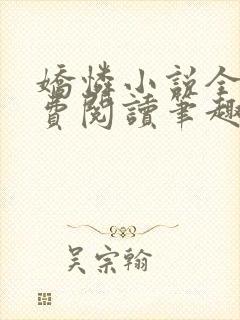 嬌憐小說全
費閱讀筆趣
吴宗翰